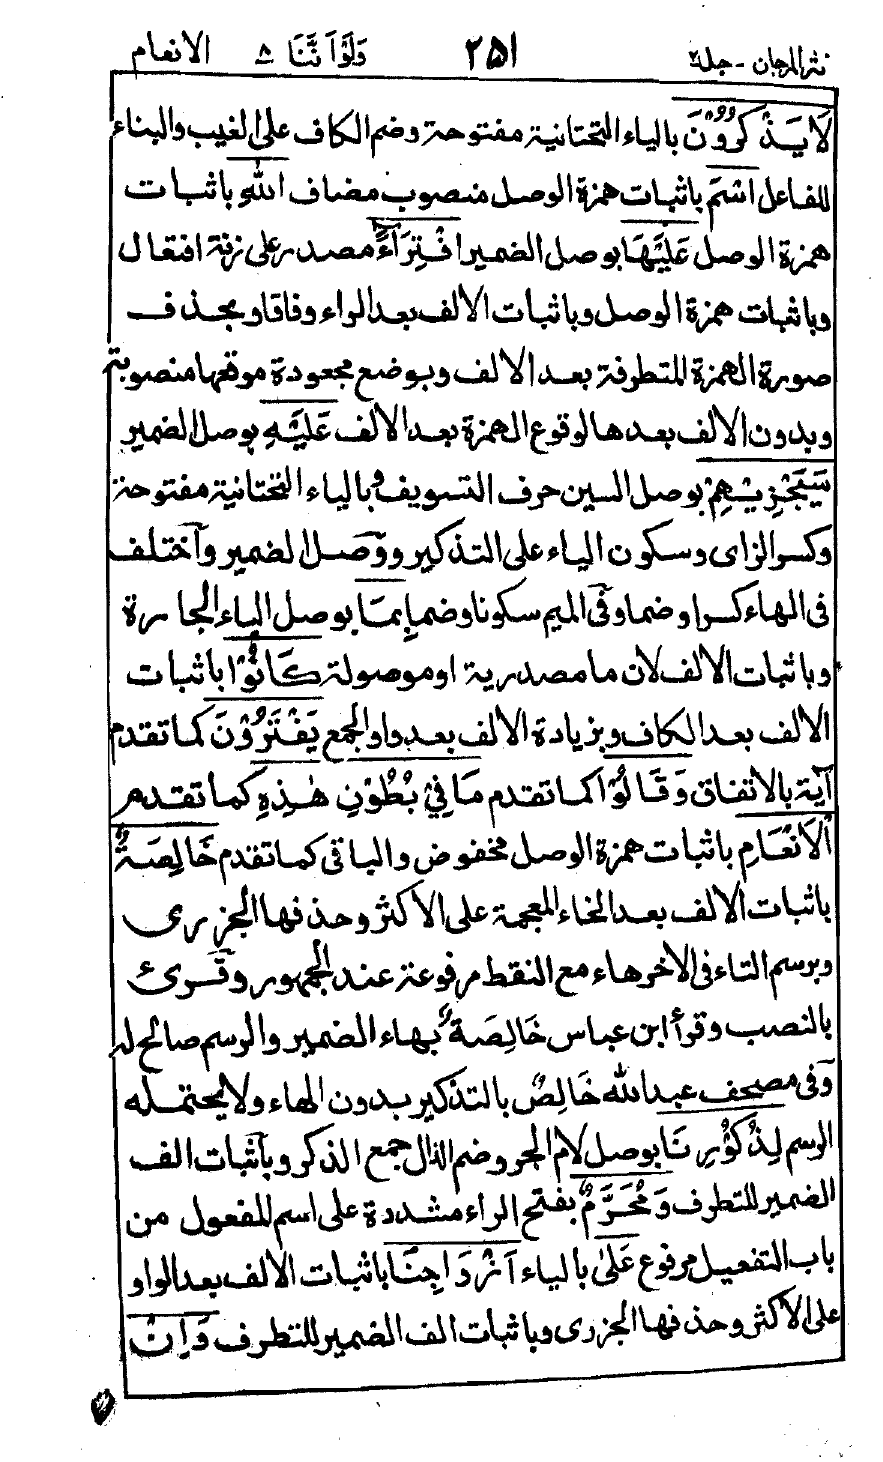 نثر المرجان - جلد ٢ ٢٥١ وَلَوْ اَنَّنَا ٨ الانعام
لَا يَذْكُرُوْنَ بالياء التحتانية مفتوحة وضم الكاف على الغيب والبناء
للفاعل اسْمَ باثبات همزة الوصل منصوب مضاف اللهِ باثبات
همزة الوصل عَلَيْهَا بوصل الضمير افْتِرَآءً مصدر على زنة افتعال
وباثبات همزة الوصل وباثبات الالف بعد الراء وفاقا وبحذف
صورة الهمزة المتطرفة بعد الالف وبوضع مجعودة موقعها منصوبة
وبدون الالف بعدها لوقوع الهمزة بعد الالف عَلَيْهِ بوصل الضمير
سَيَجْزِيْهِمْ بوصل السين حرف التسويف وبالياء التحتانية مفتوحة
وكسر الزاى وسكون الياء على التذكير ووصل الضمير واختلف
فى الهاء كسرا وضما وفى الميم سكونا وضما بِمَا بوصل الباء الجارة
وباثبات الالف لان ما مصدرية او موصولة كَانُوْا باثبات
الالف بعد الكاف وبزيادة الالف بعد واو الجمع يَفْتَرُوْنَ كما تقدم
آية بالاتفاق وَقَالُوْا كما تقدم مَا فِيْ بُطُوْنِ هٰذِهِ كما تقدم
الْاَنْعَامِ باثبات همزة الوصل مخفوض والباقى كما تقدم خَالِصَةٌ
باثبات الالف بعد الخاء المعجمة على الاكثر وحذفها الجزرى
وبرسم التاء فى الاخر هاء مع النقط مرفوعة عند الجمهور وقرئ
بالنصب وقرأ ابن عباس خَالِصَهٗ بهاء الضمير والرسم صالح له
وفى مصحف عبد الله خَالِصٌ بالتذكير بدون الهاء ولا يحتمله
الرسم لِذُكُوْرِنَا بوصل لام الجر وضم الذال جمع الذكر وباثبات الف
الضمير للتطرف وَمُحَرَّمٌ بفتح الراء مشددة على اسم المفعول من
باب التفعيل مرفوع عَلٰى بالياء اَزْوَاجِنَا باثبات الالف بعد الواو
على الاكثر وحذفها الجزرى وباثبات الف الضمير للتطرف وَاِنْ